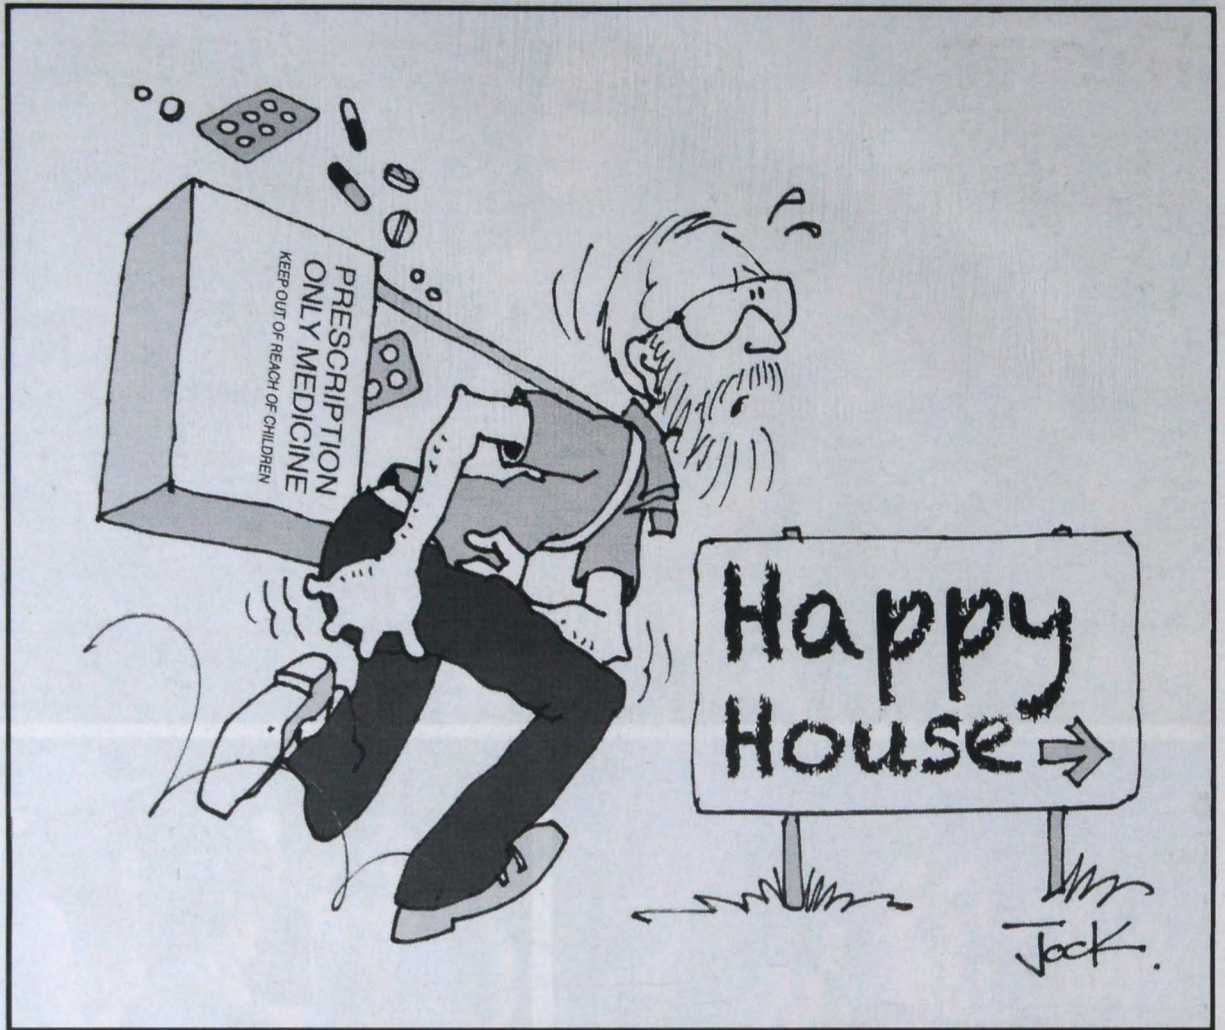 PRESCRIPTION
ONLY MEDICINE
KEEP OUT OF REACH OF CHILDREN
Happy
House
Jock.